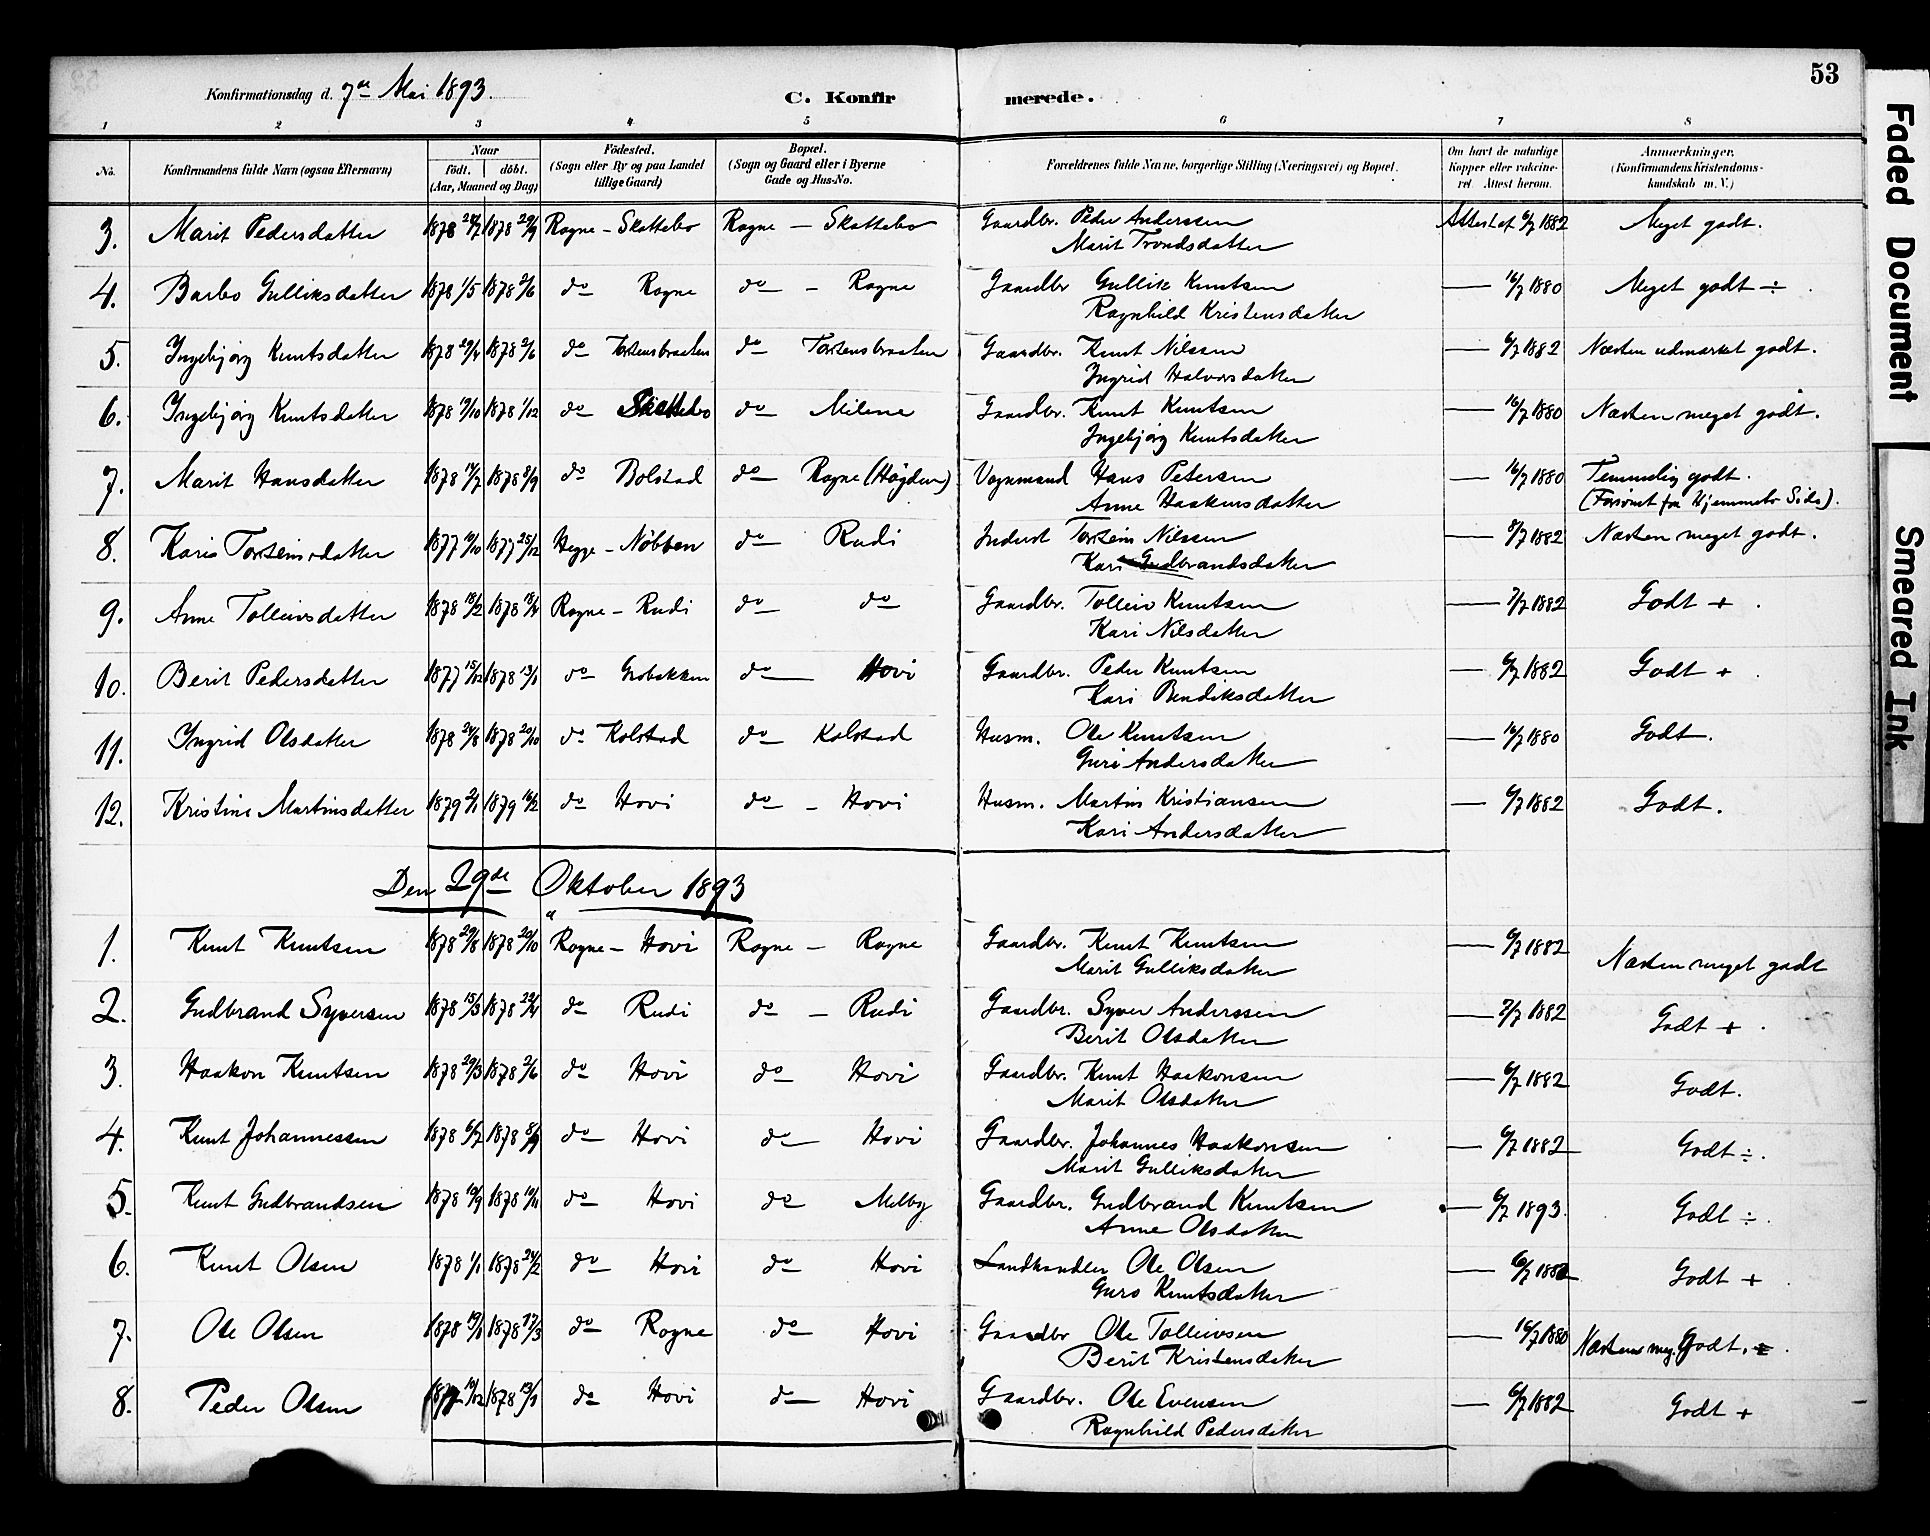 53
Konfirmationsdag d. 7de Mai 1893.
C. Konfirmerede.
1 2 3 4 5 6 7 8
No. Konfirmandens fulde Navn (ogsaa Efternavn) Naar født. døbt. (Aar, Maaned og Dag) Födested. (Sogn eller By og paa Landet tillige Gaard) Bopæl. (Sogn og Gaard eller i Byerne Gade og Hus-No. Forældrenes fulde Navne, borgerlige Stilling (Næringsvei) og Bopæl. Om havt de naturlige Kopper eller vakcineret. Attest herom. Anmærkninger. (Konfirmandens Kristendomskundskab m. V.)
3. Marit Pedersdatter 1878 24/7 1878 29/9 Rogne - Skattebo Rogne - Skattebo Gaardbr. Peder Anderssen Attest af 6/7 1882 Meget godt.
Marit Trondsdatter
4. Barbo Gulliksdatter 1878 1/5 1878 2/6 do Rogne do - Rogne Gaardbr Gullik Knutsen — 16/7 1880 Meget godt ÷
Ragnhild Kristensdatter
5. Ingebjørg Knutsdatter 1878 29/4 1878 2/6 do Torstensbraaten do Torstensbraaten Gaardbr. Knut Nilssen — 6/7 1882 Næsten udmærket godt.
Ingrid Halvorsdatter
6. Ingebjørg Knutsdatter 1878 19/10 1878 1/12 do Skattebo do Milene Gaardbr. Knut Knutsen — 16/7 1880 Næsten meget godt.
Ingebjørg Knutsdatter
7. Marit Hansdatter 1878 17/7 1878 8/9 do Bolstad do Rogne (Høgden) Vognmand Hans Petersen — 16/7 1880 Temmelig godt.
Anne Haakensdatter (Forsømt fra Hjemmets Side).
8. Karis Torsteinsdatter 1877 10/10 1877 25/12 Hegge - Nøbben do Rudi Inderst Torstein Nilssen — 8/7 1882 Næsten meget godt.
Kari Gudbrandsdatter
9. Anne Tolleivsdatter 1878 18/2 1878 18/4 Rogne - Rudi do do Gaardbr. Tolleiv Knutsen — 7/7 1882 Godt +
Kari Nilsdatter
10. Berit Pedersdatter 1877 15/12 1878 13/1 do Grobakken do Hovi Gaardbr. Peder Knutsen — 6/7 1882 Godt +
Kari Bendiksdatter
11. Ingrid Olsdatter 1878 24/8 1878 20/10 do Kolstad do Kolstad Husm. Ole Knutsen — 16/7 1880 Godt.
Guri Andersdatter
12. Kristine Martinsdatter 1879 2/1 1879 16/2 do Hovi do - Hovi Husm. Martin Kristiansen — 6/7 1882 Godt.
Kari Andersdatter
Den 29de Oktober 1893
1. Knut Knutsen 1878 29/8 1878 20/10 Rogne - Hovi Rogne - Rogne Gaardbr. Knut Knutsen — 6/7 1882 Næsten meget godt
Marit Gulliksdatter
2. Gudbrand Syversen 1878 15/3 1878 22/4 do Rudi do - Rudi Gaardbr. Syver Anderssen — 7/7 1882 Godt +
Berit Olsdatter
3. Haakon Knutsen 1878 29/3 1878 2/6 do Hovi do Hovi Gaardbr. Knut Haakonsen — 6/7 1882 Godt.
Marit Olsdatter
4. Knut Johannessen 1878 6/7 1878 8/9 do Hovi do Hovi Gaardbr. Johannes Haakonsen — 6/7 1882 Godt ÷.
Marit Gulliksdatter
5. Knut Gudbrandsen 1878 19/9 1878 10/11 do Hovi do Melby Gaardbr. Gudbrand Knutsen — 6/7 1893. Godt ÷.
Anne Olsdatter
6. Knut Olsen 1878 1/1 1878 24/2 do Hovi do Hovi Landhandler Ole Olsen — 6/7 1882 Godt +
Guro Knutsdatter
7. Ole Olsen 1878 19/1 1878 17/3 do Rogne do Hovi Gaardbr Ole Tolleivsen — 16/7 1880 Næsten meg. Godt.
Berit Kristensdatter
8. Peder Olsen 1877 10/12 1878 13/1 do Hovi do Hovi Gaardbr. Ole Evensen — 6/7 1882 Godt +
Ragnhild Pedersdatter
Faded Document
Smeared Ink